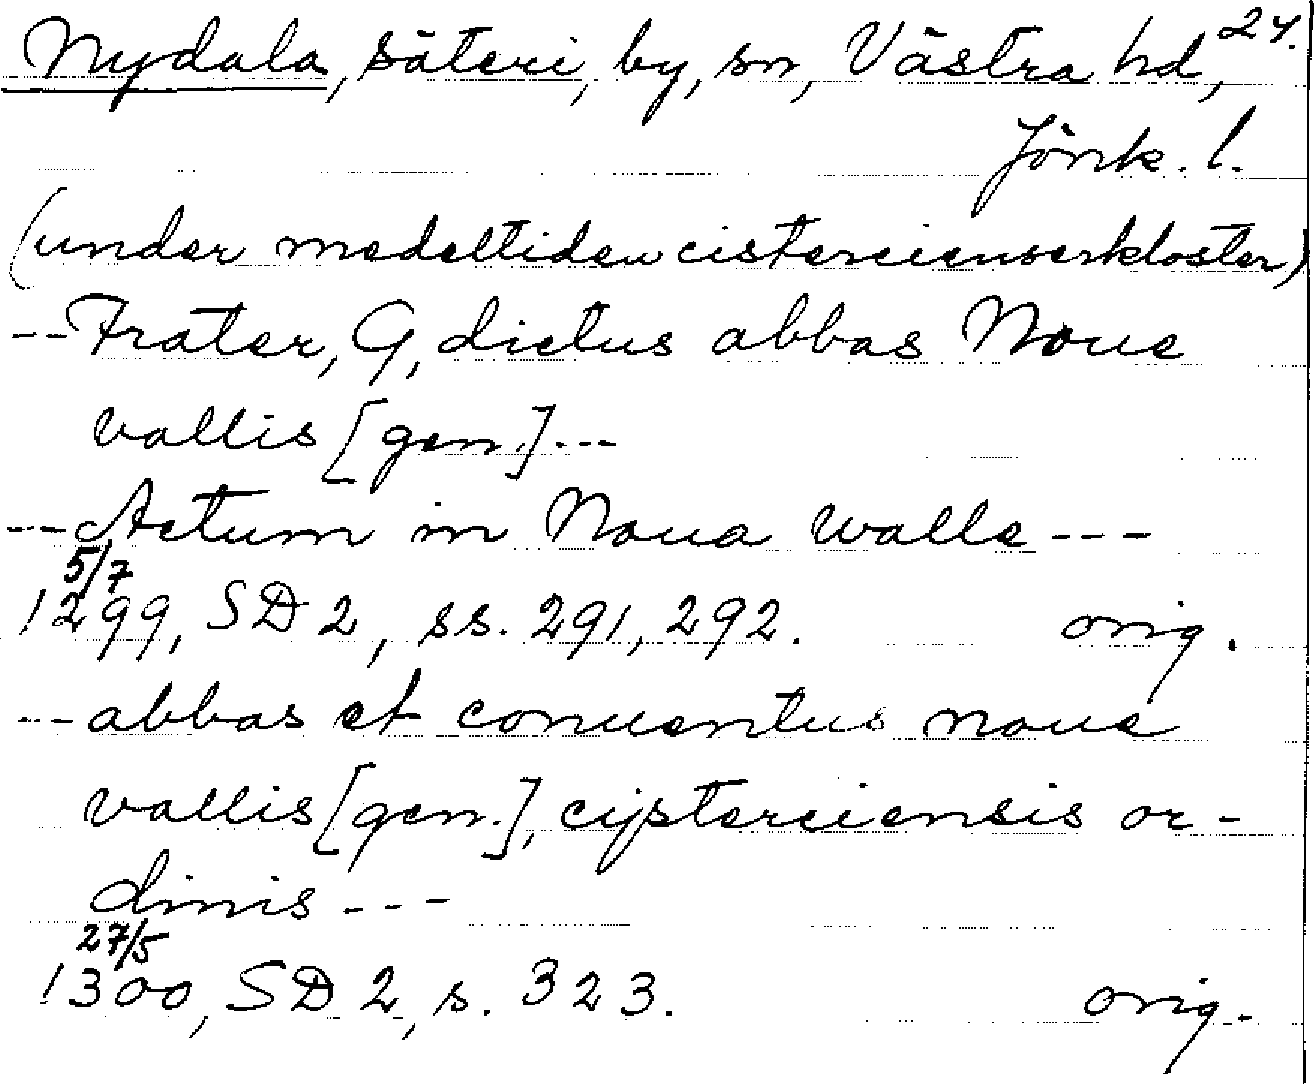 Nydala, säteri, by, sn, Västra hd, 27.
Jönk. l.
(under medeltiden cistercienserkloster)
--Frater, G, dictus abbas Noue
vallis [gen.]---
---Actum in Noua walle---
5/7
1299, SD 2, ss. 291, 292. orig.
---abbas et conuentus noue
vallis [gen.], cysterciensis or-
dinis---
27/5
1300, SD 2, s. 323. orig.